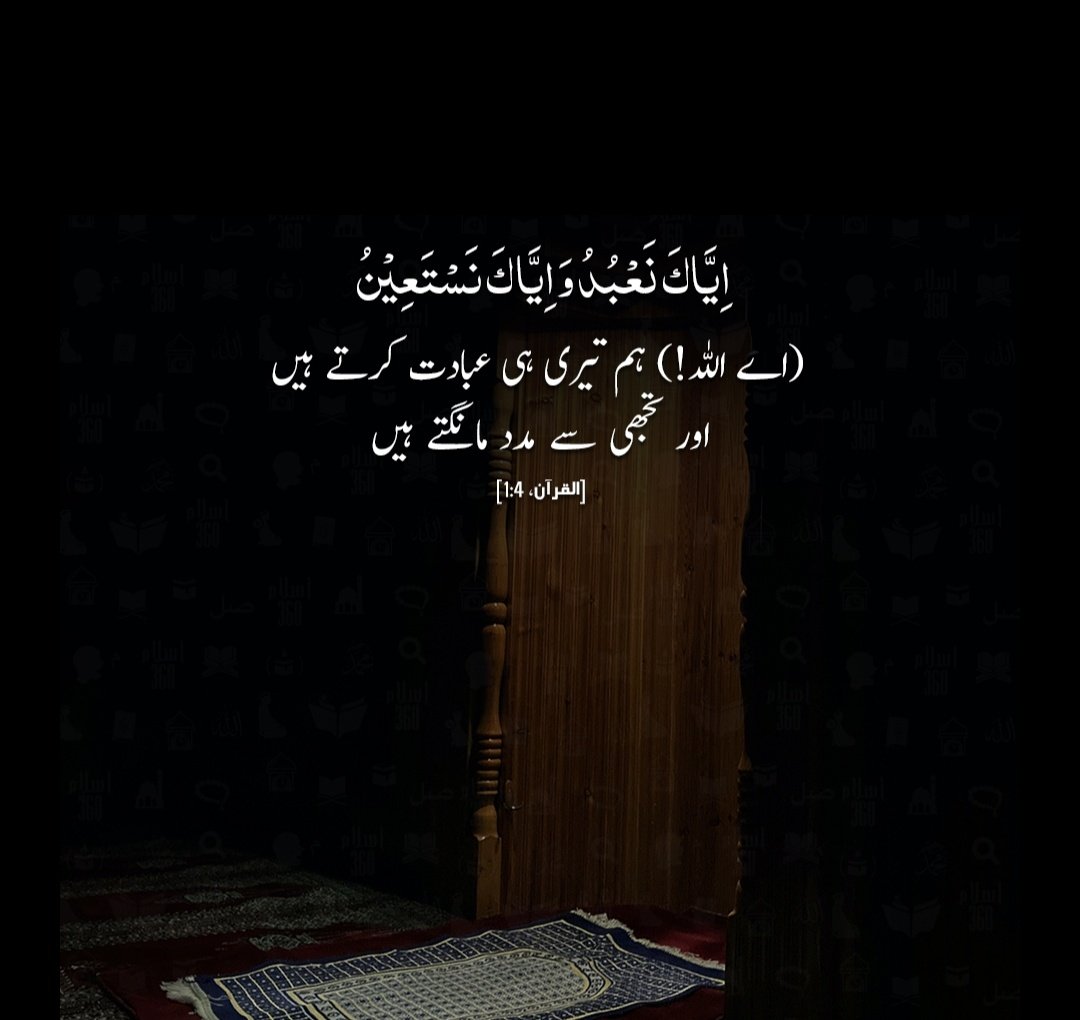 اِیَّاكَ نَعْبُدُ وَ اِیَّاكَ نَسْتَعِیْنُ
(اے اللہ!) ہم تیری ہی عبادت کرتے ہیں
اور تجھی سے مدد مانگتے ہیں
[القرآن، 1:4]